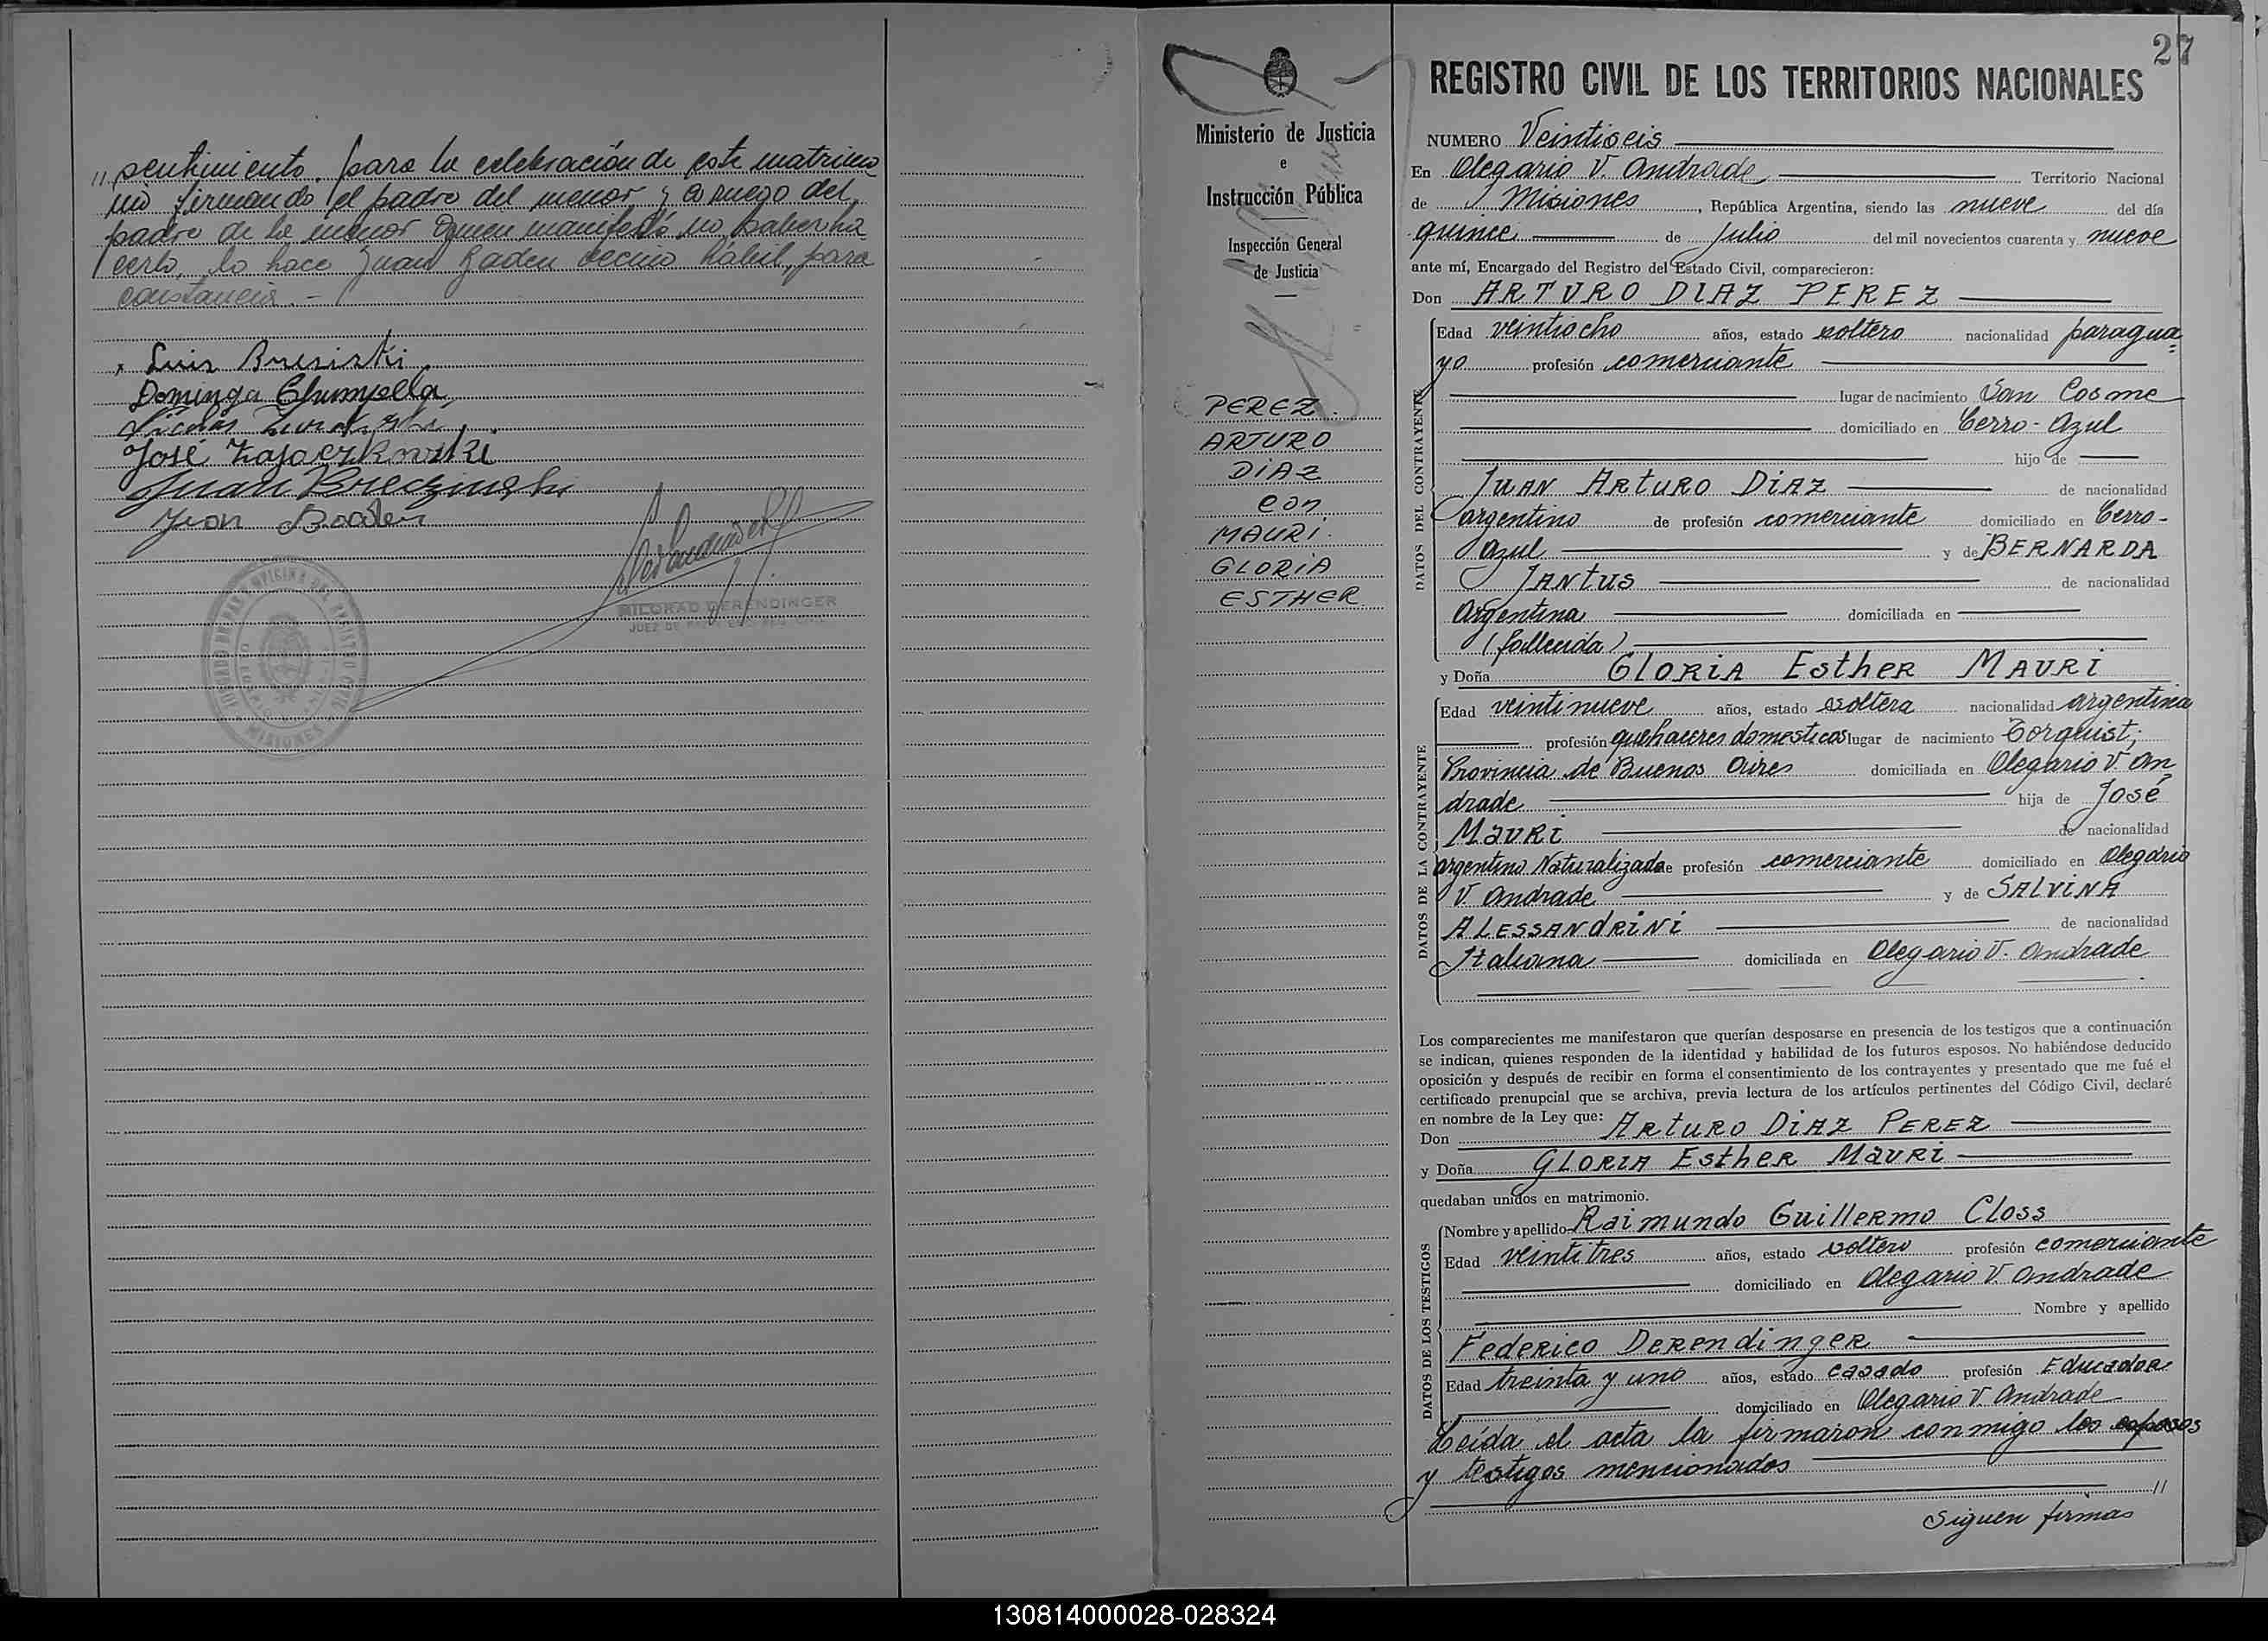 " sentimiento. para la celebración de este matrimo
nio firmando el padre del menor y a ruego del
padre de la menor quien manifestó no saber ha
cerlo, lo hace Juan Baden vecino hábil, para
constancia. -
Luis
Dominga
José Zajaczkowski
Juan
Juan
MILORAD DERENDINGER
JUEZ DE PAZ
MISIONES
27
Ministerio de Justicia
e
Instrucción Pública
Inspección General
de Justicia
PEREZ.
ARTURO
DIAZ
CON
MAURI.
GLORIA
ESTHER
REGISTRO CIVIL DE LOS TERRITORIOS NACIONALES
NUMERO Veintiseis
En Olegario V. Andrade Territorio Nacional
de Misiones, República Argentina, siendo las nueve del día
quince de Julio del mil novecientos cuarenta y nueve
ante mí, Encargado del Registro del Estado Civil, comparecieron:
Don ARTURO DIAZ PEREZ
Edad veintiocho años, estado soltero nacionalidad paragua=
yo profesión comerciante
lugar de nacimiento San Cosme
domiciliado en Cerro-Azul
hijo de
JUAN ARTURO DIAZ de nacionalidad
argentino de profesión comerciante domiciliado en Cerro-
Azul y de BERNARDA
JANTUS de nacionalidad
Argentina domiciliada en
(fallecida)
DATOS DEL CONTRAYENTE
y Doña GLORIA ESTHER MAURI
Edad veintinueve años, estado soltera nacionalidad argentina
profesión quehaceres domesticos lugar de nacimiento Torquist,
Provincia de Buenos Aires domiciliada en Olegario V An
drade hija de José
MAURI de nacionalidad
argentino Naturalizado de profesión comerciante domiciliado en Olegario
V. Andrade y de SALVINA
ALESSANDRINI de nacionalidad
Italiana domiciliada en Olegario V. Andrade
DATOS DE LA CONTRAYENTE
Los comparecientes me manifestaron que querían desposarse en presencia de los testigos que a continuación
se indican, quienes responden de la identidad y habilidad de los futuros esposos. No habiéndose deducido
oposición y después de recibir en forma el consentimiento de los contrayentes y presentado que me fué el
certificado prenupcial que se archiva, previa lectura de los artículos pertinentes del Código Civil, declaré
en nombre de la Ley que:
Don ARTURO DIAZ PEREZ
y Doña GLORIA ESTHER MAURI
quedaban unidos en matrimonio.
Nombre y apellido Raimundo Guillermo Closs
Edad veintitres años, estado soltero profesión comerciante
domiciliado en Olegario V Andrade
Nombre y apellido
Federico Derendinger
Edad treinta y uno años, estado casado profesión Educador
domiciliado en Olegario V. Andrade
DATOS DE LOS TESTIGOS
Leida el acta la firmaron conmigo los esposos
y testigos mencionados
//
Siguen firmas
130814000028-028324